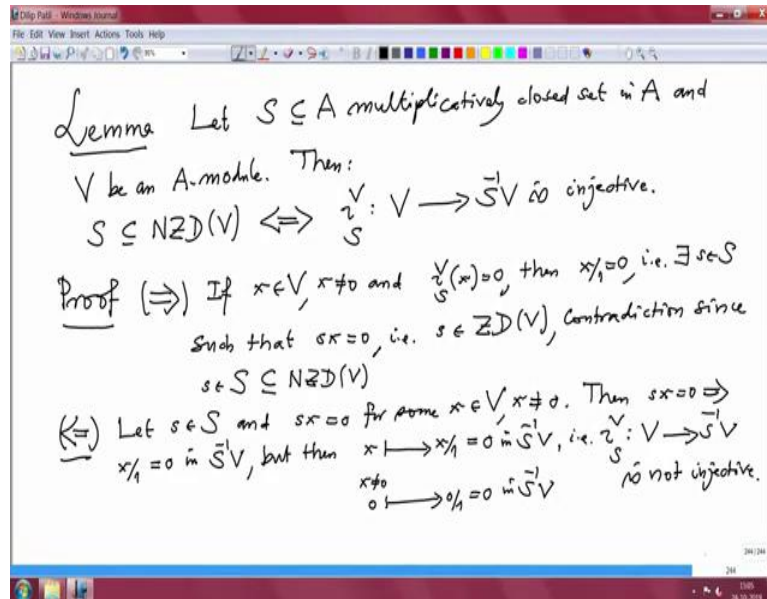 Dilip Patil - Windows Journal
File Edit View Insert Actions Tools Help
Lemma Let S ⊆ A multiplicatively closed set in A and
V be an A-module. Then:
S ⊆ NZD(V) ⟺ ι_S^V : V ⟶ S⁻¹V is injective.
Proof (⟹) If x ∈ V, x ≠ 0 and ι_S^V(x)=0, then x/1=0, i.e. ∃ s∈S
such that sx=0, i.e. s ∈ ZD(V), contradiction since
s ∈ S ⊆ NZD(V)
(⟸) Let s∈S and sx=0 for some x∈V, x≠0. Then sx=0 ⟹
x/1 = 0 in S⁻¹V, but then x ⟼ x/1 = 0 in S⁻¹V, i.e. ι_S^V : V ⟶ S⁻¹V
x≠0 is not injective.
0 ⟼ 0/1 = 0 in S⁻¹V
244/244
244
15:05
24-10-2019